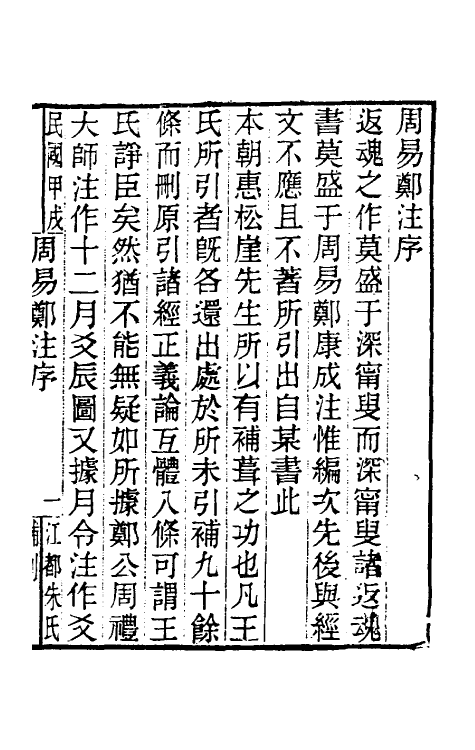 周易鄭注序
返魂之作莫盛于深甯叟而深甯叟諸返魂
書莫盛于周易鄭康成注惟編次先後與經
文不應且不著所引出自某書此
本朝惠松崖先生所以有補葺之功也凡王
氏所引者旣各還出處於所未引補九十餘
條而刪原引諸經正義論互體八條可謂王
氏諍臣矣然猶不能無疑如所據鄭公周禮
大師注作十二月爻辰圖又據月令注作爻
民國甲戌
周易鄭注序
一
江都朱氏
補刋